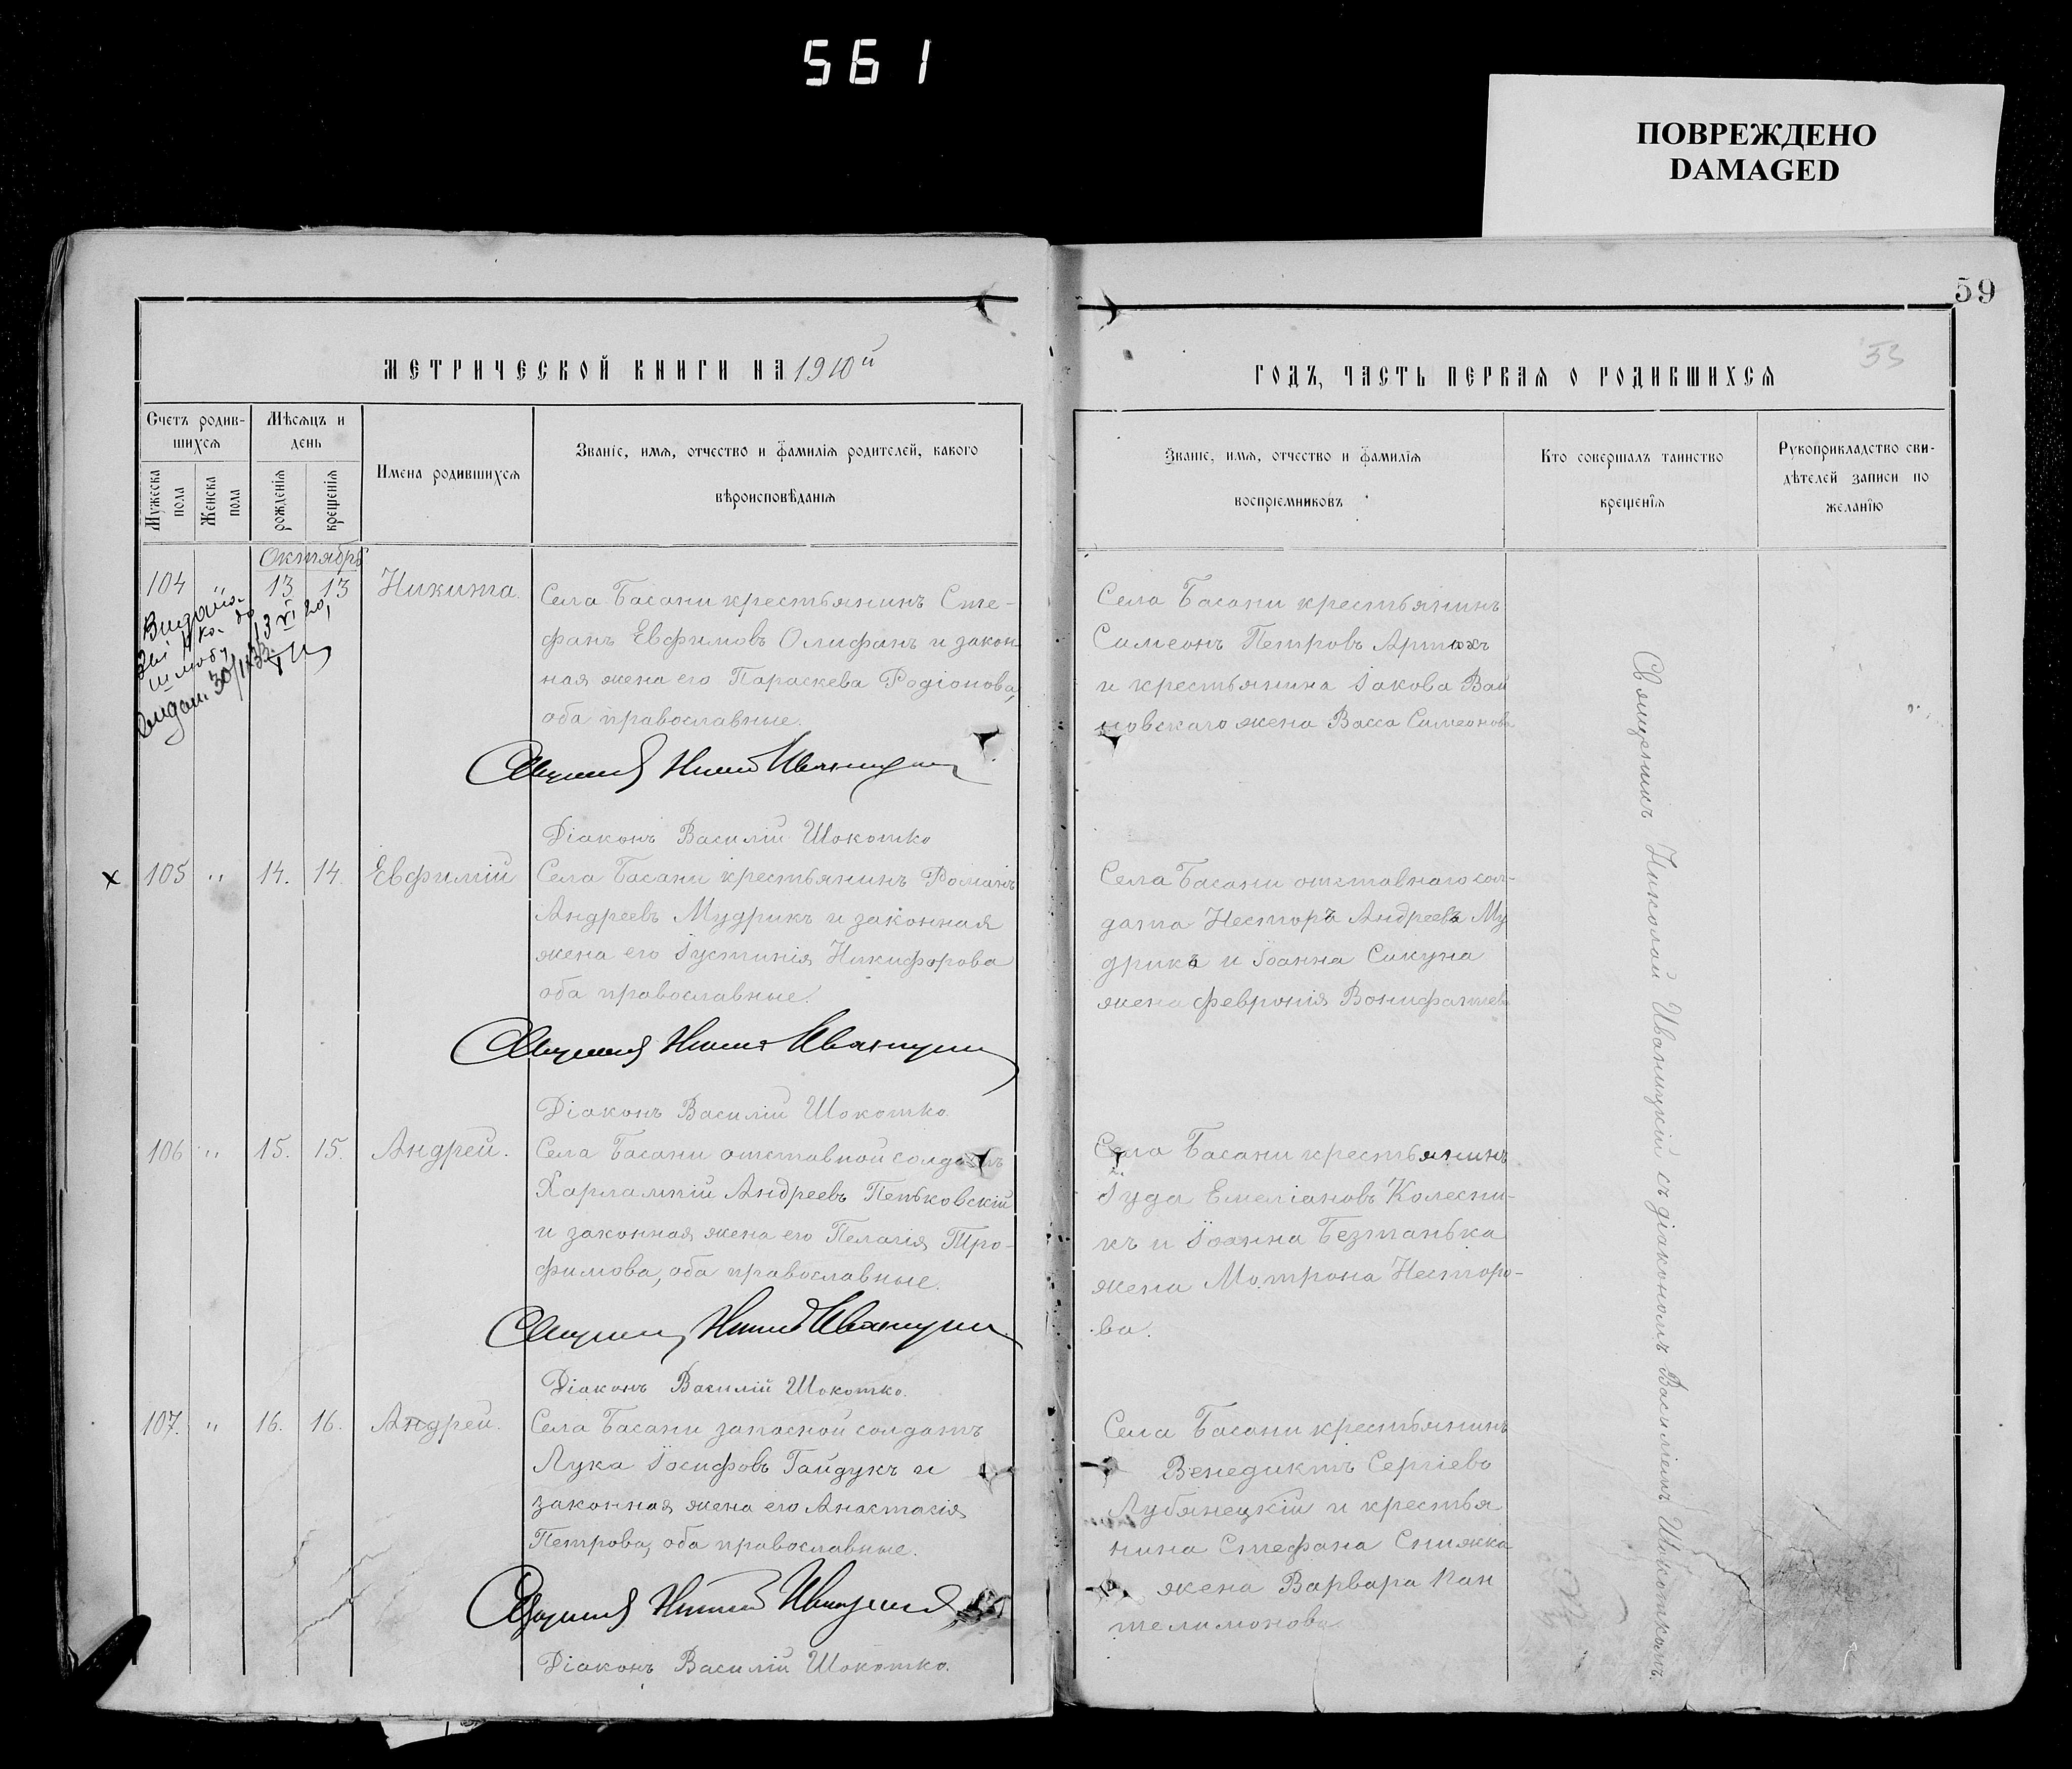 561
ПОВРЕЖДЕНО
DAMAGED
59
53
МЕТРИЧЕСКОЙ КНИГИ НА 1910й
ГОДЪ, ЧАСТЬ ПЕРВАЯ О РОДИВШИХСЯ
Счетъ родив-
шихся
Мужеска
пола
Женска
пола
Мѣсяцъ и
день
рожденія
крещенія
Имена родившихся
Званіе, имя, отчество и фамилія родителей, какого
вѣроисповѣданія
Званіе, имя, отчество и фамилія
воспріемниковъ
Кто совершалъ таинство
крещенія
Рукоприкладство сви-
дѣтелей записи по
желанію
Октябрь
104 " 13 13 Никита.
Села Басани крестьянинъ Сте-
фанъ Евфимовъ Олифанъ и закон
ная жена его Параскева Родіонова,
оба православные.
Діаконъ Василій Шокотко
Села Басани крестьянинъ
Симеонъ Петровъ Артюхъ
и крестьянина Іакова Вой
новскаго жена Васса Симеонова
105 " 14. 14. Евфимій
Села Басани крестьянинъ Романъ
Андреевъ Мудрикъ и законная
жена его Іустинія Никифорова
оба православные.
Діаконъ Василій Шокотко
Села Басани отставнаго сол-
дата Несторъ Андреевъ Му
дрикъ и Іоанна Сикуна
жена Февронія Вонифатіева
106 " 15. 15. Андрей.
Села Басани отставной солдатъ
Харлампій Андреевъ Пеньковскій
и законная жена его Пелагія Тро-
фимова, оба православные.
Діаконъ Василій Шокотко.
Села Басани крестьянинъ
Іуда Емеліановъ Колесни-
къ и Іоанна Безтанька
жена Мотрона Несторо-
ва.
107. " 16. 16. Андрей.
Села Басани запасной солдатъ
Лука Іосифовъ Гайдукъ и
законная жена его Анастасія
Петрова, оба православные.
Діаконъ Василій Шокотко.
Села Басани крестьянинъ
Венедиктъ Сергіевъ
Лубянецкій и крестья
нина Стефана Снижка
жена Варвара Пан
телимонова
Священникъ Николай Иваницкій съ діакономъ Василіемъ Шокоткомъ.